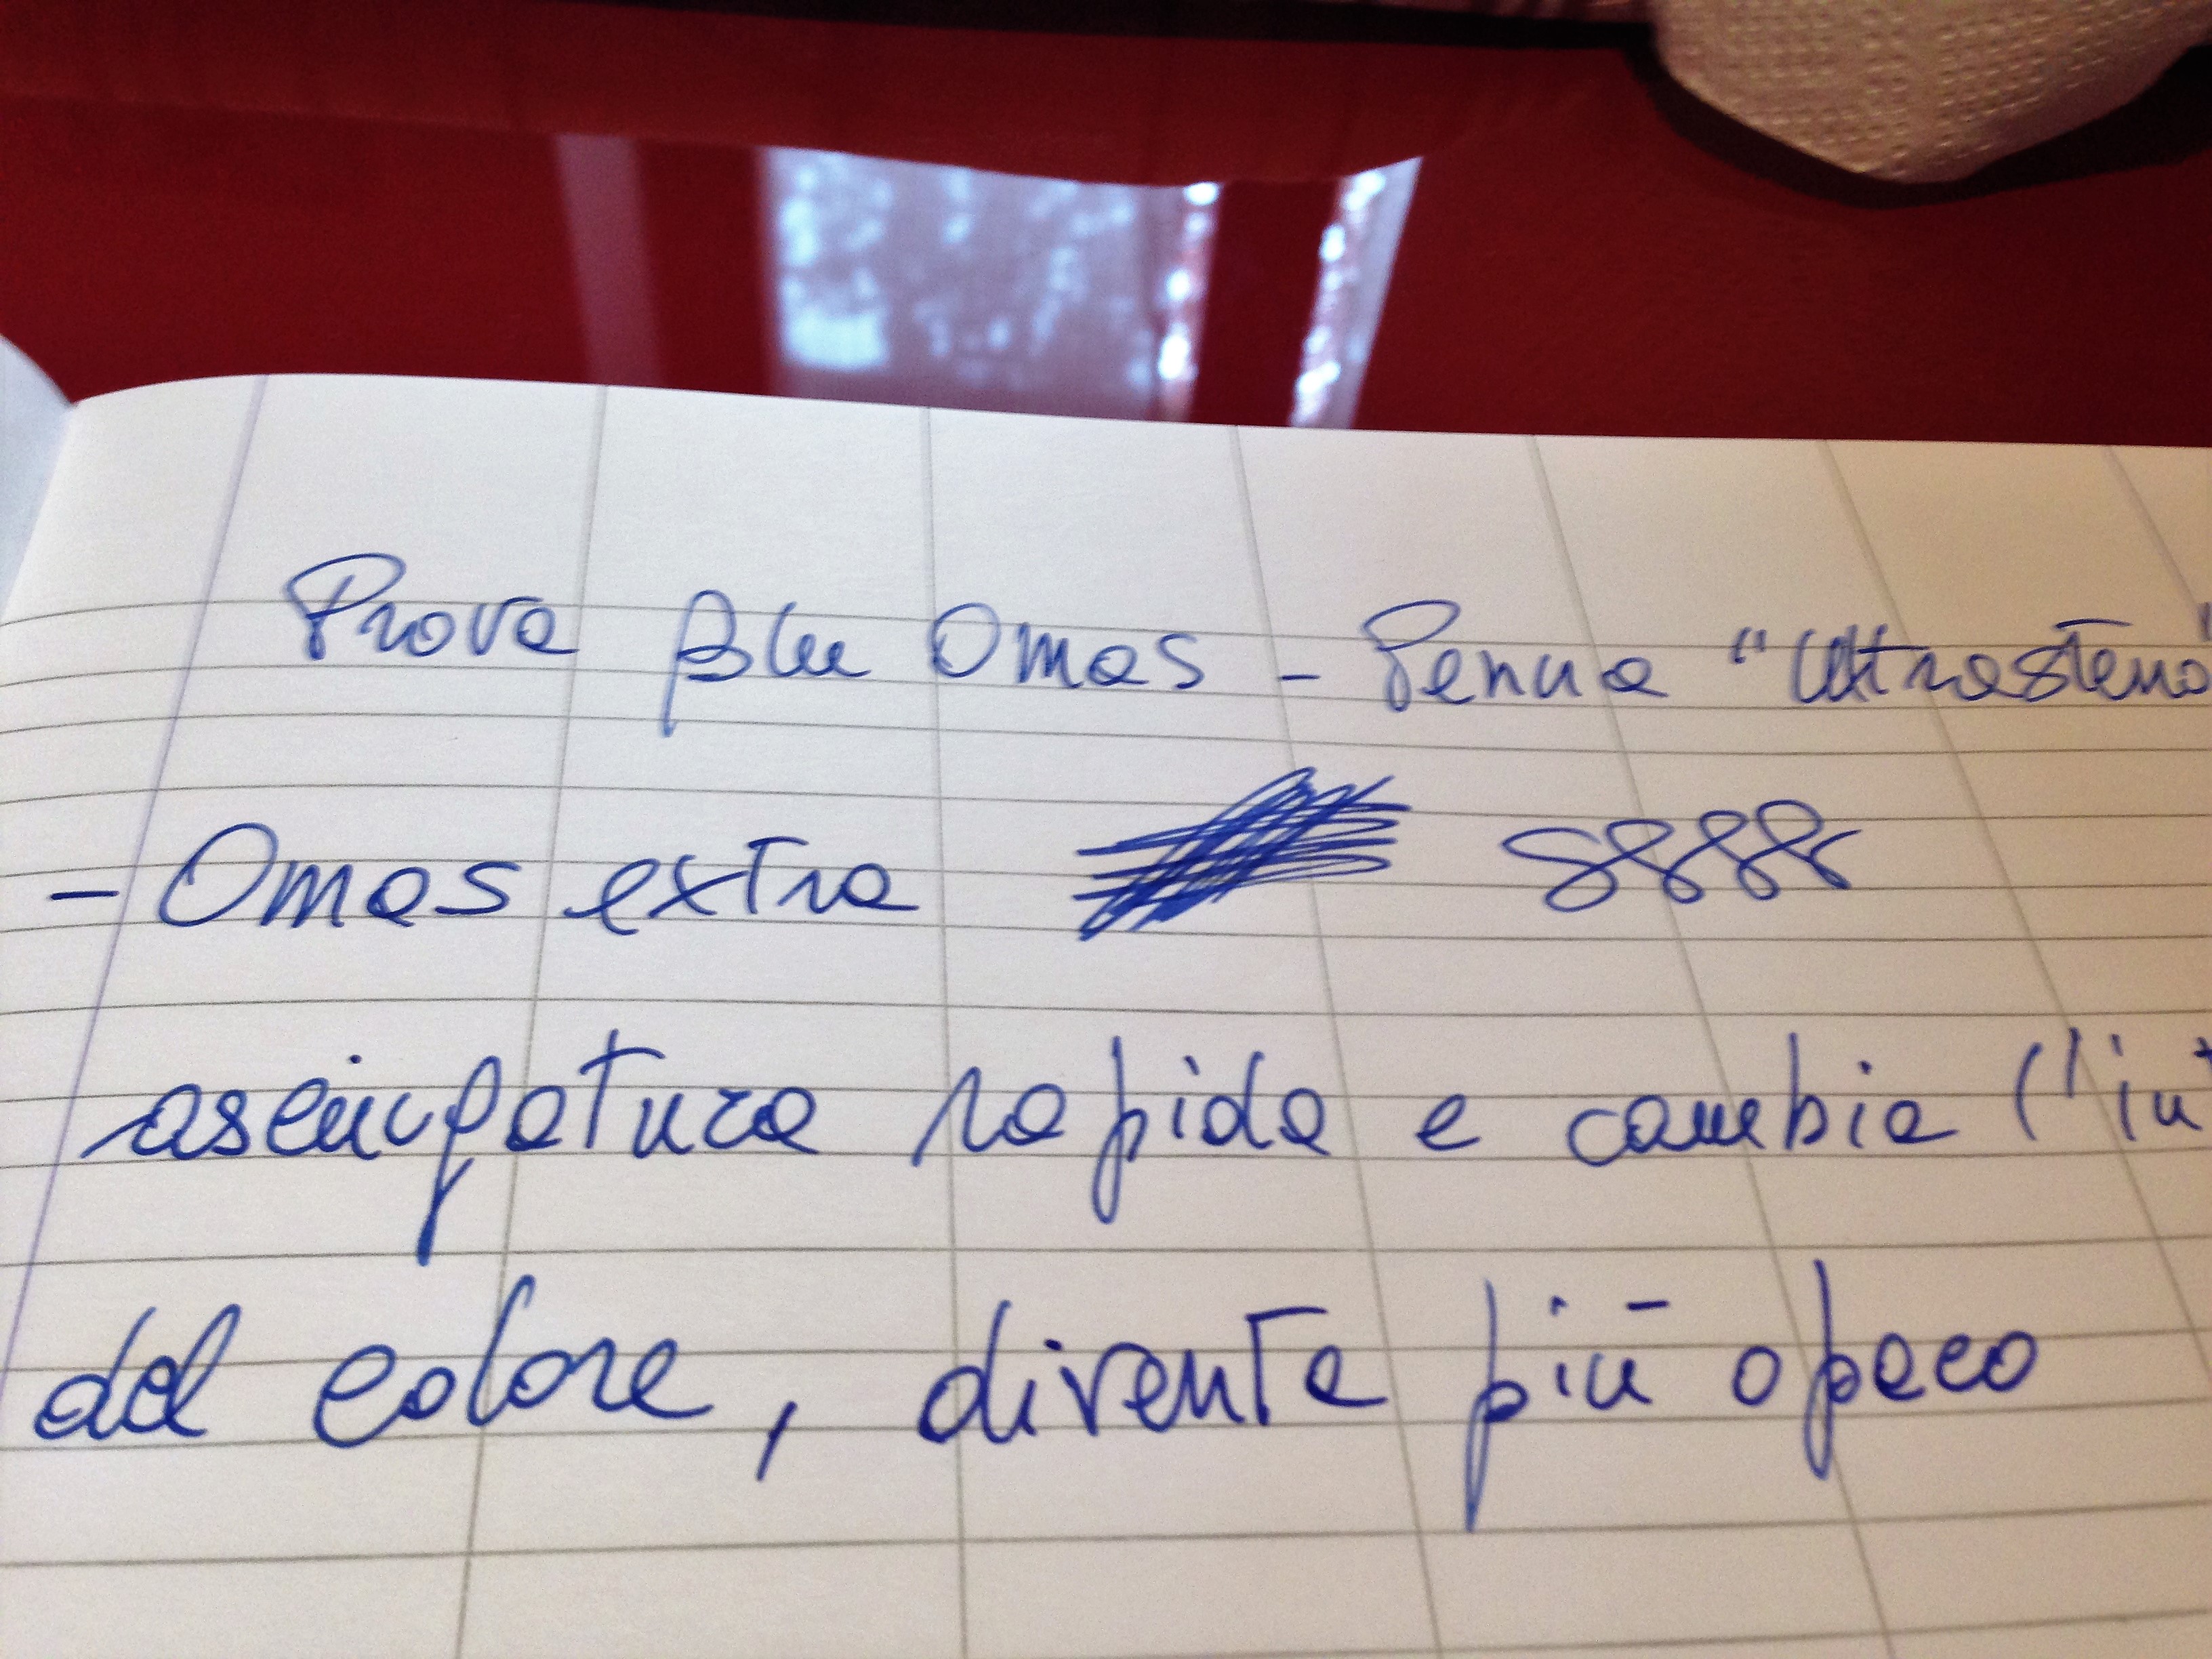 Prova Blu Omas - Penna "Ultrasteno"
- Omas extra 8888
asciugatura rapida e cambia l'int
del colore, diventa più opaco